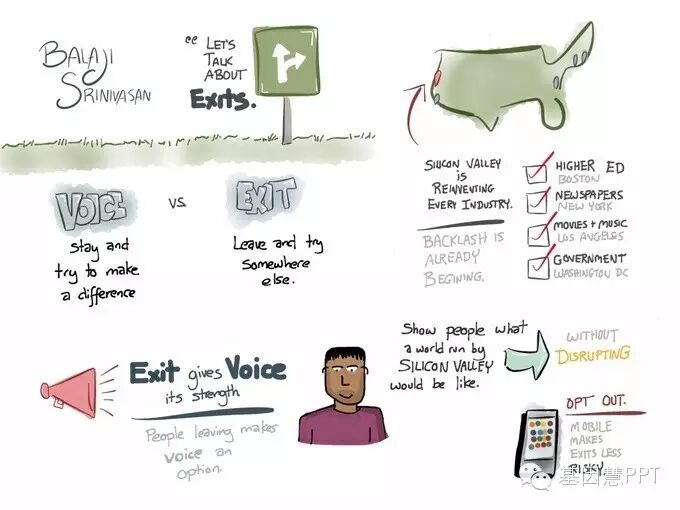 BALAJI
SRINIVASAN
"LET'S
TALK
ABOUT
Exits.
VOICE
VS
EXIT
Stay and
try to make
a difference
Leave and try
Somewhere
else.
SILICON VALLEY
IS
REINVENTING
EVERY INDUSTRY.
BACKLASH IS
ALREADY
BEGINING.
HIGHER ED
BOSTON
NEWSPAPERS
NEW YORK
MOVIES + MUSIC
LOS ANGELES
GOVERNMENT
WASHINGTON DC
Exit gives Voice
its strength
People leaving makes
voice an
option.
Show people what
a world run by
SILICON VALLEY
would be like.
WITHOUT
DISRUPTING
OPT OUT.
MOBILE
MAKES
EXITS LESS
RISKY.
基因慧PPT